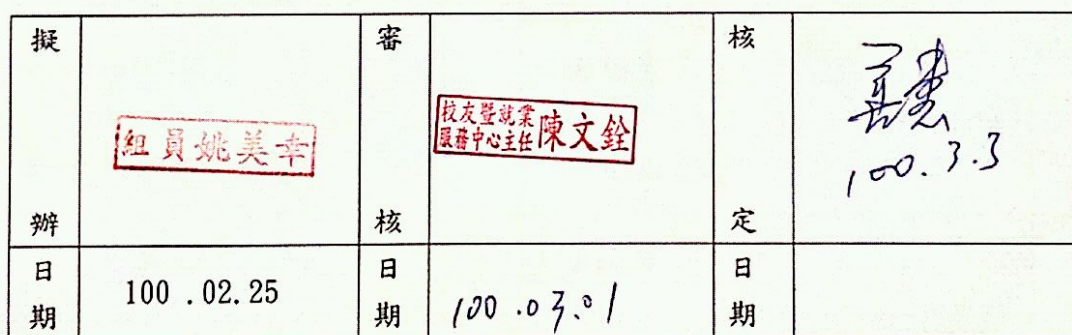 擬辦
組員姚美幸
審核
校友暨就業
服務中心主任
陳文銓
核定
100.3.3
日期
100 .02.25
日期
100.03.01
日期